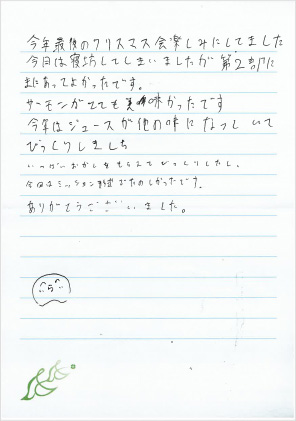 今年最後のクリスマス会楽しみにしてました
今日は寝坊してしまいましたが第2部に
まにあってよかったです。
サーモンがとても美味かったです
今年はジュースが他の味になっていて
びっくりしました
いっぱいおかしをもらえてびっくりしたし、
今日はミッション
たのしかったです。
ありがとうございました。